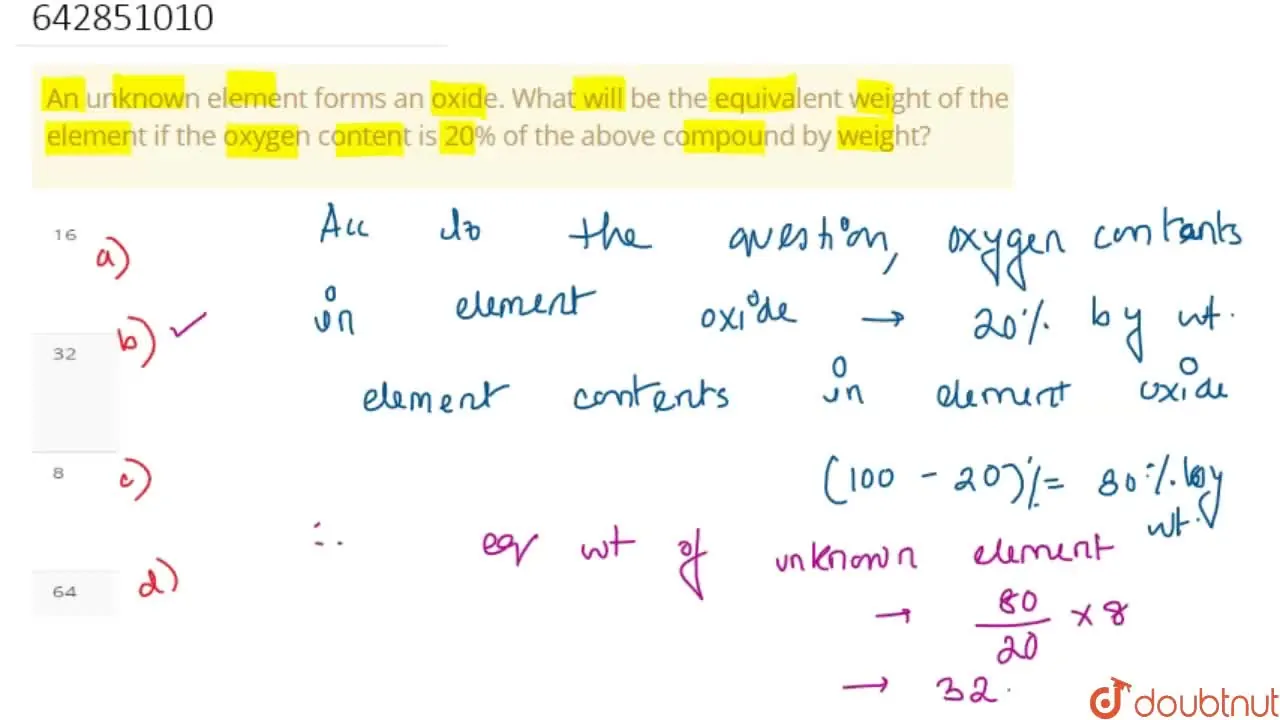 642851010
An unknown element forms an oxide. What will be the equivalent weight of the
element if the oxygen content is 20% of the above compound by weight?
16 a)
32 b) ✓
8 c)
64 d)
Acc to the question, oxygen contents
in element oxide → 20% by wt.
element contents in element oxide
(100 - 20)% = 80% by
wt.
∴ eq wt of unknown element
→ 80/20 × 8
→ 32.
doubtnut